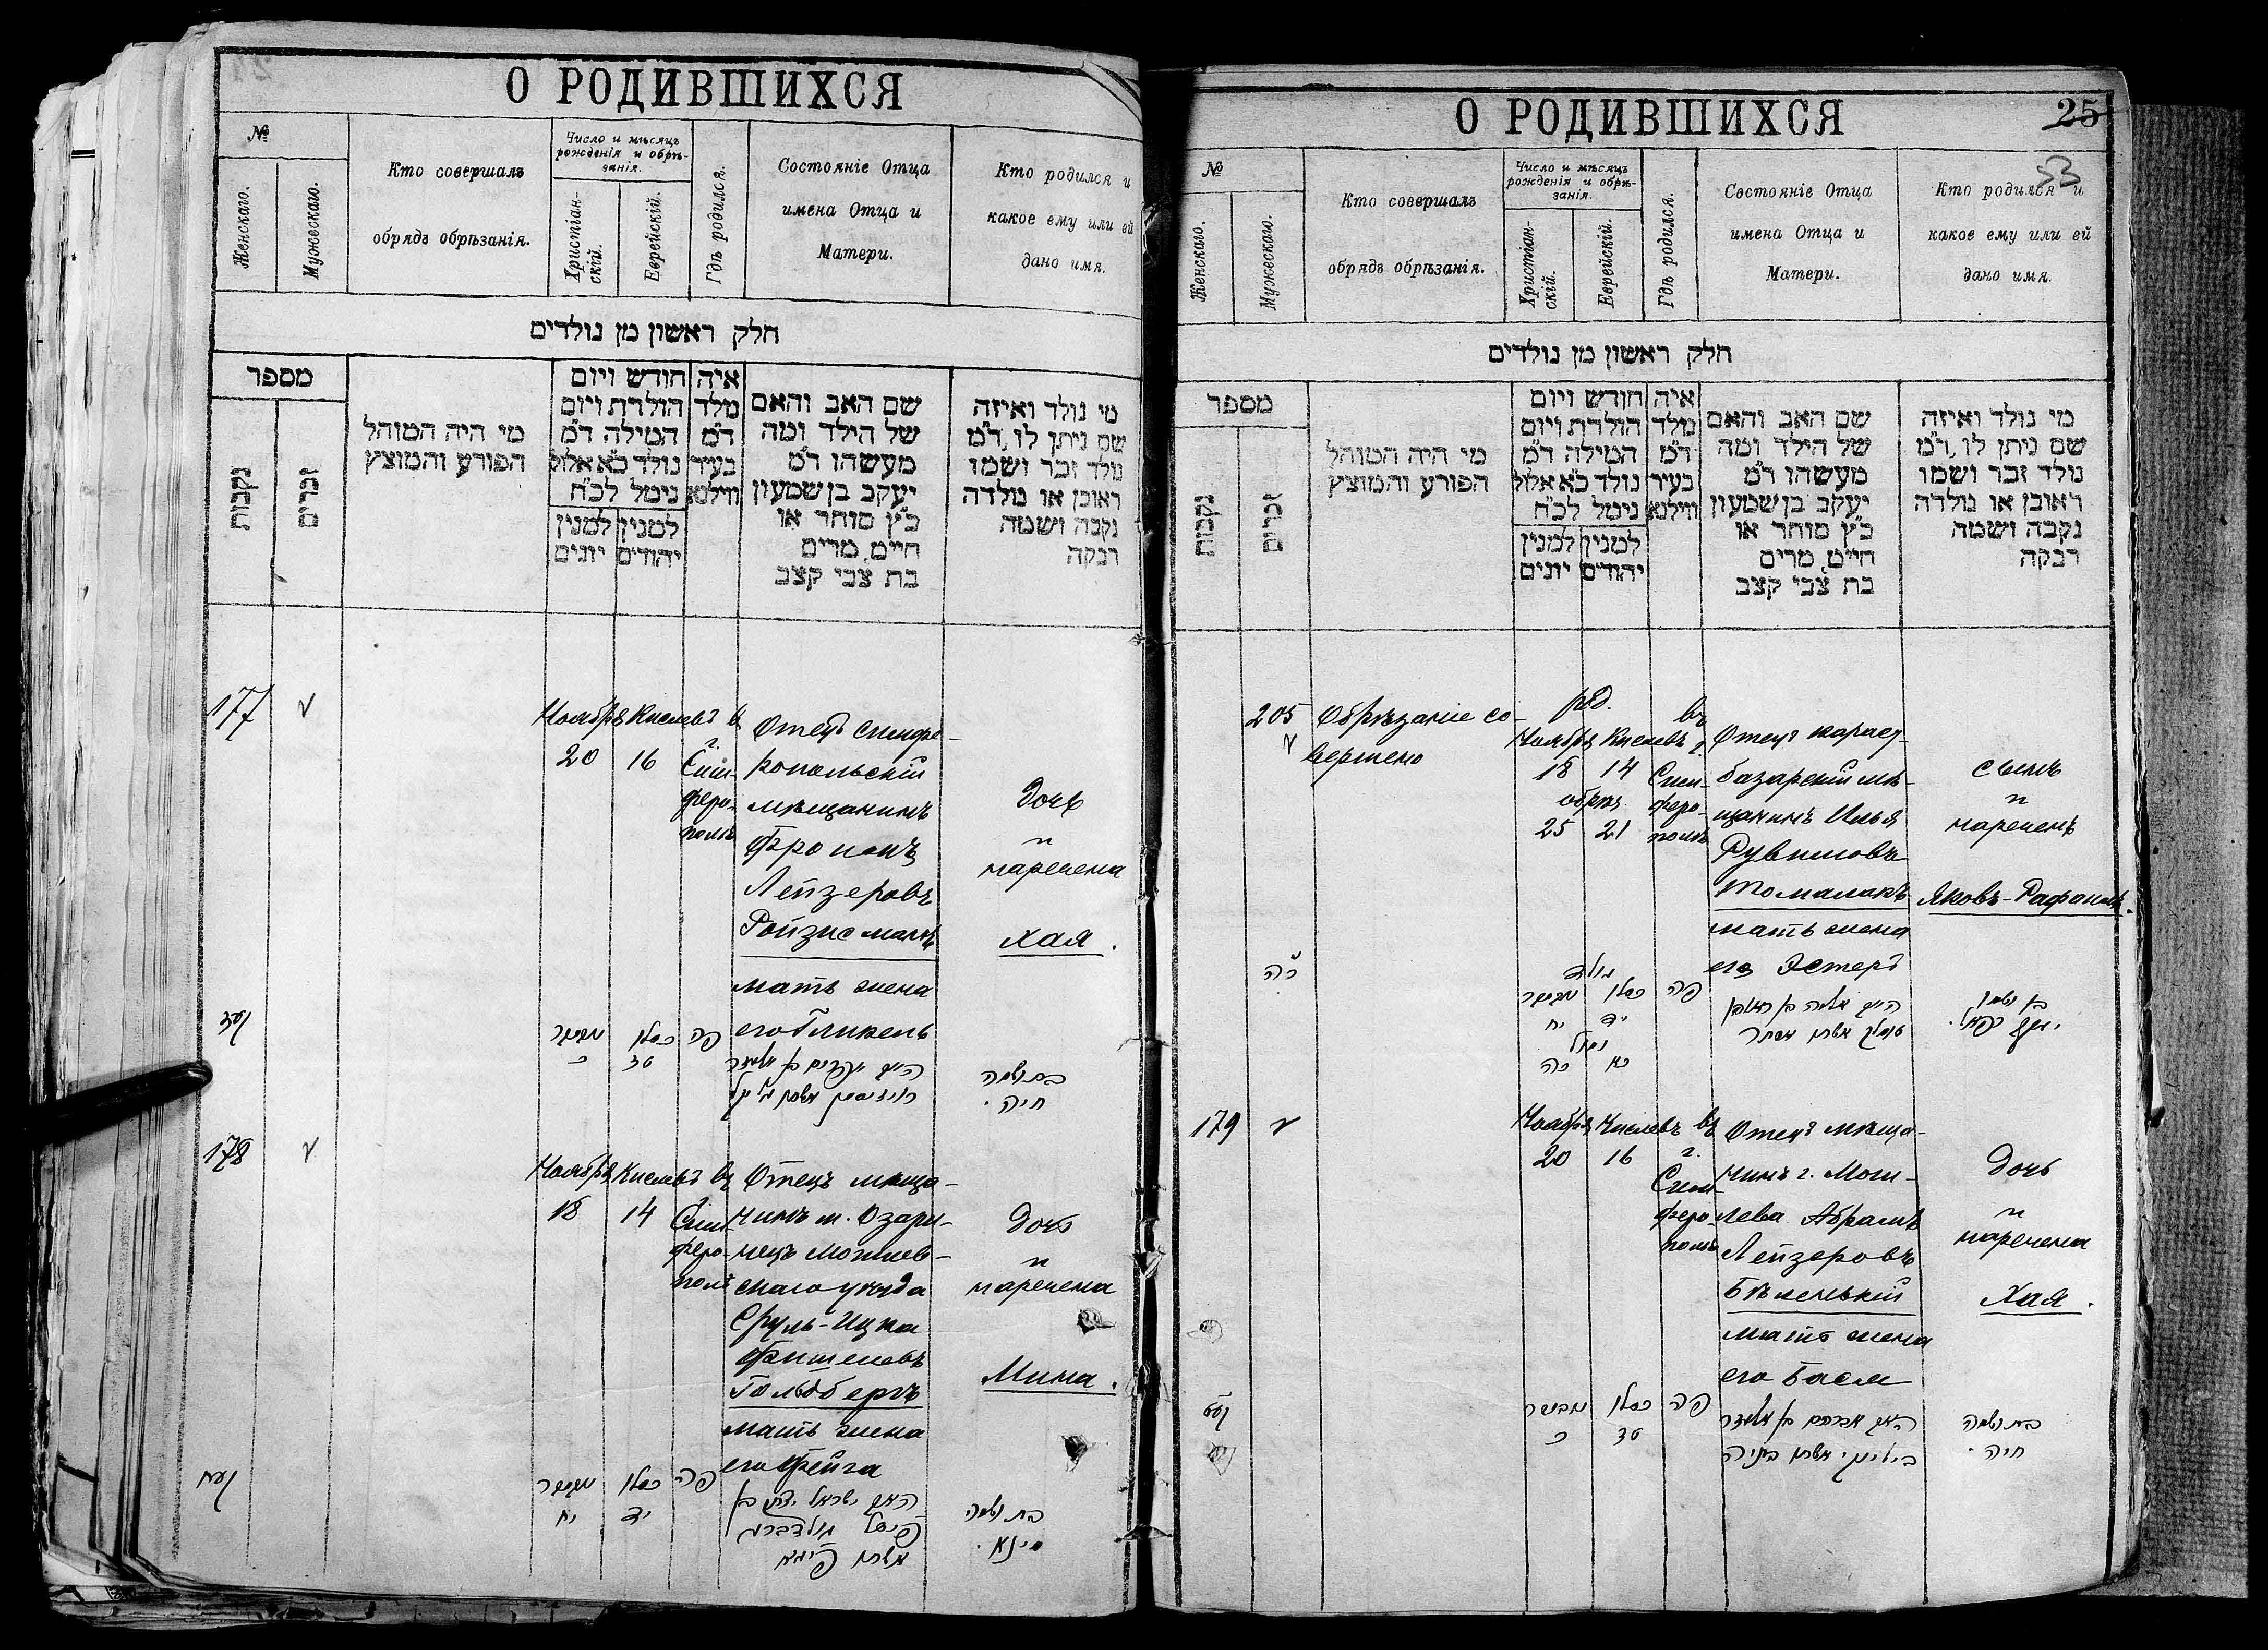 О РОДИВШИХСЯ
№
Женскаго.
Мужескаго.
Кто совершалъ
обрядъ обрѣзанія.
Число и мѣсяцъ
рожденія и обрѣ-
занія.
Христіан-
скій.
Еврейскій.
Гдѣ родился.
Состояніе Отца
имена Отца и
Матери.
Кто родился и
какое ему или ей
дано имя.
חלק ראשון מן נולדים
מספר
נקבות
זכרים
מי היה המוהל
הפורע והמוצץ
חודש ויום
הולדת ויום
המילה ד״מ
נולד כ״א אלול
נימל לכ״ח
למנין למנין
יהודים יונים
איה
נולד
ד״מ
בעיר
ווילנא
שם האב והאם
של הילד ומה
מעשהו ד״מ
יעקב בן שמעון
כ״ץ סוחר או
חיים, מרים
בת צבי קצב
מי נולד ואיזה
שם ניתן לו, ד״מ
נולד זכר ושמו
ראובן או נולדה
נקבה ושמה
רבקה
177
Ноября Кислевъ в
20 16
г.
Сим-
феро-
полѣ
Отецъ симфе-
ропольскій
мѣщанинъ
Фроимъ
Лейзеровъ
Ройзисманъ
мать жена
его Гликель
Дочь
и
наречена
Хая.
כסלו
טז
פה
בת ושמה
חיה.
178
Ноября Кислевъ въ
18 14
Сим-
феро-
полѣ
Отецъ мѣща-
нинъ м. Озари-
нецъ Могилев-
скаго уѣзда
Сруль-Ицка
Фишелевъ
Гольдбергъ
мать жена
его Фейга
Дочь
и
наречена
Мина.
כסלו
יד
יח
פה
בת ושמה
מינא.
О РОДИВШИХСЯ
25
53
№
Женскаго.
Мужескаго.
Кто совершалъ
обрядъ обрѣзанія.
Число и мѣсяцъ
рожденія и обрѣ-
занія.
Христіан-
скій.
Еврейскій.
Гдѣ родился.
Состояніе Отца
имена Отца и
Матери.
Кто родился и
какое ему или ей
дано имя.
חלק ראשון מן נולדים
מספר
נקבות
זכרים
מי היה המוהל
הפורע והמוצץ
חודש ויום
הולדת ויום
המילה ד״מ
נולד כ״א אלול
נימל לכ״ח
למנין למנין
יהודים יונים
איה
נולד
ד״מ
בעיר
ווילנא
שם האב והאם
של הילד ומה
מעשהו ד״מ
יעקב בן שמעון
כ״ץ סוחר או
חיים, מרים
בת צבי קצב
מי נולד ואיזה
שם ניתן לו, ד״מ
נולד זכר ושמו
ראובן או נולדה
נקבה ושמה
רבקה
205
Обрѣзаніе со-
вершено
род.
Ноября Кислевъ
18 14
обрѣз.
25 21
въ
г.
Сим-
феро-
полѣ
Отецъ карасу-
базарскій мѣ-
щанинъ Илья
Рувимовъ
Томалакъ
мать жена
его Эстеръ
сынъ
и
нареченъ
Яковъ-Рафаилъ.
רה
נולד
כסלו
יד
יח
נימול
כא
כה
פה
בן ושמו
179
Ноября Кислевъ въ
20 16
г.
Сим-
феро-
полѣ
Отецъ мѣща-
нинъ г. Моги-
лева Абрамъ
Лейзеровъ
Бѣленькій
мать жена
его Бася
Дочь
и
наречена
Хая.
כסלו
טז
כ
פה
בת ושמה
חיה.